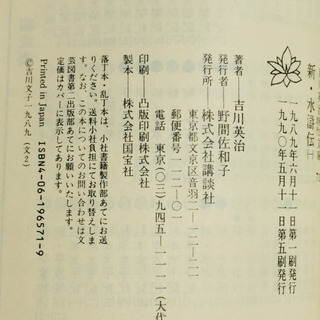 新・水滸伝㈠
一九八九年六月十一日第一刷発行
一九九〇年五月十一日第五刷発行
著者 吉川英治
発行者 野間佐和子
発行所 株式会社講談社
東京都文京区音羽二―一二―
郵便番号一一二―〇一
電話 東京（〇三）九四五―一一一一（大代
印刷 凸版印刷株式会社
製本 株式会社国宝社
落丁本・乱丁本は、小社書籍製作部あてにお送
りください。送料小社負担にてお取り替えしま
す。なお、この本についてのお問い合わせは文
芸図書第一出版部あてにお願いいたします。
定価はカバーに表示してあります。
©吉川文子一九八九（文2）
Printed in Japan ISBN4-06-196571-9